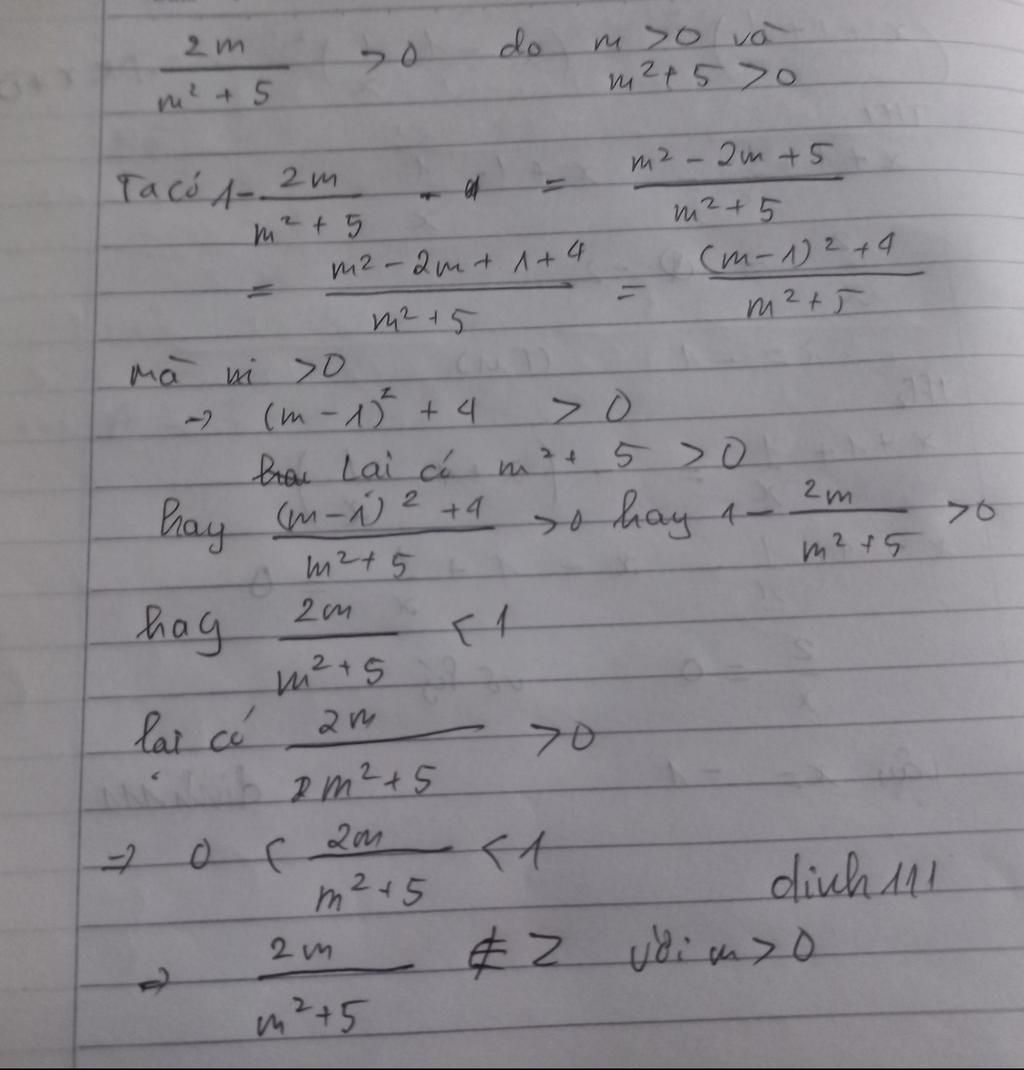 2m / (m² + 5) > 0 do m > 0 và
m² + 5 > 0
Ta có 1 - 2m / (m² + 5) = (m² - 2m + 5) / (m² + 5)
= (m² - 2m + 1 + 4) / (m² + 5) = ((m - 1)² + 4) / (m² + 5)
mà m > 0
→ (m - 1)² + 4 > 0
Lai có m² + 5 > 0
hay ((m - 1)² + 4) / (m² + 5) > 0 hay 1 - 2m / (m² + 5) > 0
hay 2m / (m² + 5) < 1
lai có 2m / (m² + 5) > 0
⇒ 0 < 2m / (m² + 5) < 1
dinh111
⇒ 2m / (m² + 5) ∉ Z với m > 0